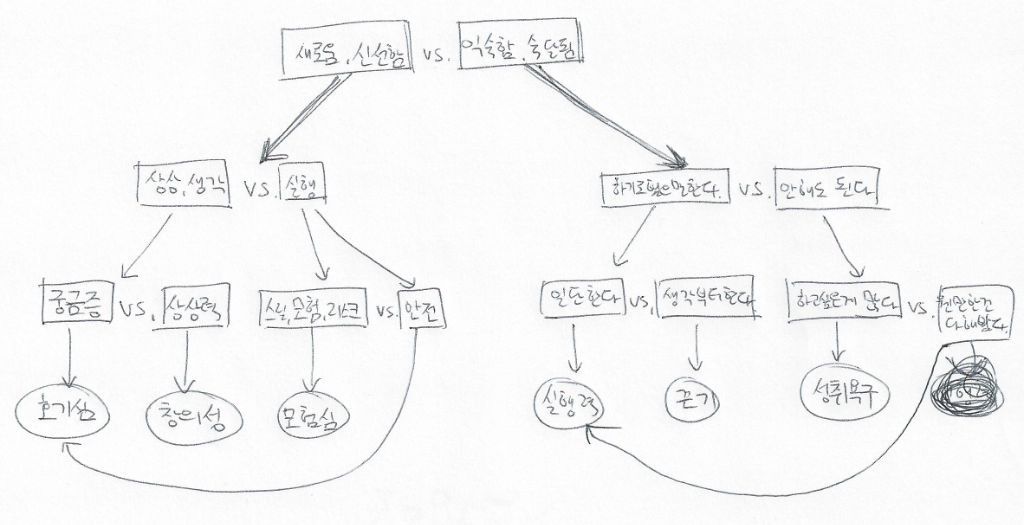 새로움, 신선함 vs. 익숙함, 숙달됨
상상, 생각 vs. 실행
하기로 했으면 한다. vs. 안해도 된다
궁금증 vs. 상상력
스릴, 모험, 리스크 vs. 안전
일단한다 vs. 생각부터한다
하고싶은게 많다 vs. 웬만한건
다해봤다.
호기심
창의성
모험심
실행력
끈기
성취욕구